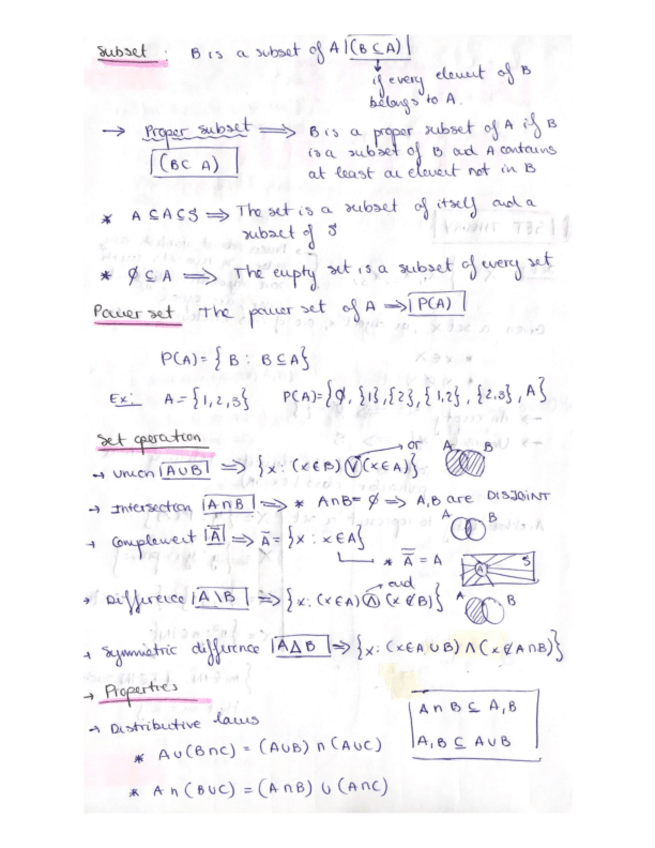 Subset : B is a subset of A (B ⊆ A)
if every element of B
belongs to A.
→ Proper subset ⟹ B is a proper subset of A if B
is a subset of B and A contains
(B⊂ A)
at least an element not in B
* A ⊆ A ⊆ S ⟹ The set is a subset of itself and a
subset of S
* ∅ ⊆ A ⟹ The empty set is a subset of every set
Power set The power set of A ⟹ P(A)
P(A) = { B : B ⊆ A}
Ex: A = {1,2,3} P(A)={∅, {1},{2},{1,2}, {2,3}, A}
Set operation
→ Union A∪B ⟹ {x : (x∈B) ∨ (x∈A)} → or A B
→ Intersection A∩B ⟹ * A∩B= ∅ ⟹ A,B are DISJOINT
A B
→ Complement Ā ⟹ Ā = {x : x∈A}
* A̿ = A A S
→ Difference A\B ⟹ {x: (x∈A) ∧ (x∉B)} → and A B
→ Symmetric difference A∆B ⟹ {x: (x∈A∪B) ∧ (x∉A∩B)}
→ Properties
A∩B ⊆ A,B
→ Distributive laws
A,B ⊆ A∪B
* A∪(B∩C) = (A∪B) ∩ (A∪C)
* A∩(B∪C) = (A∩B) ∪ (A∩C)